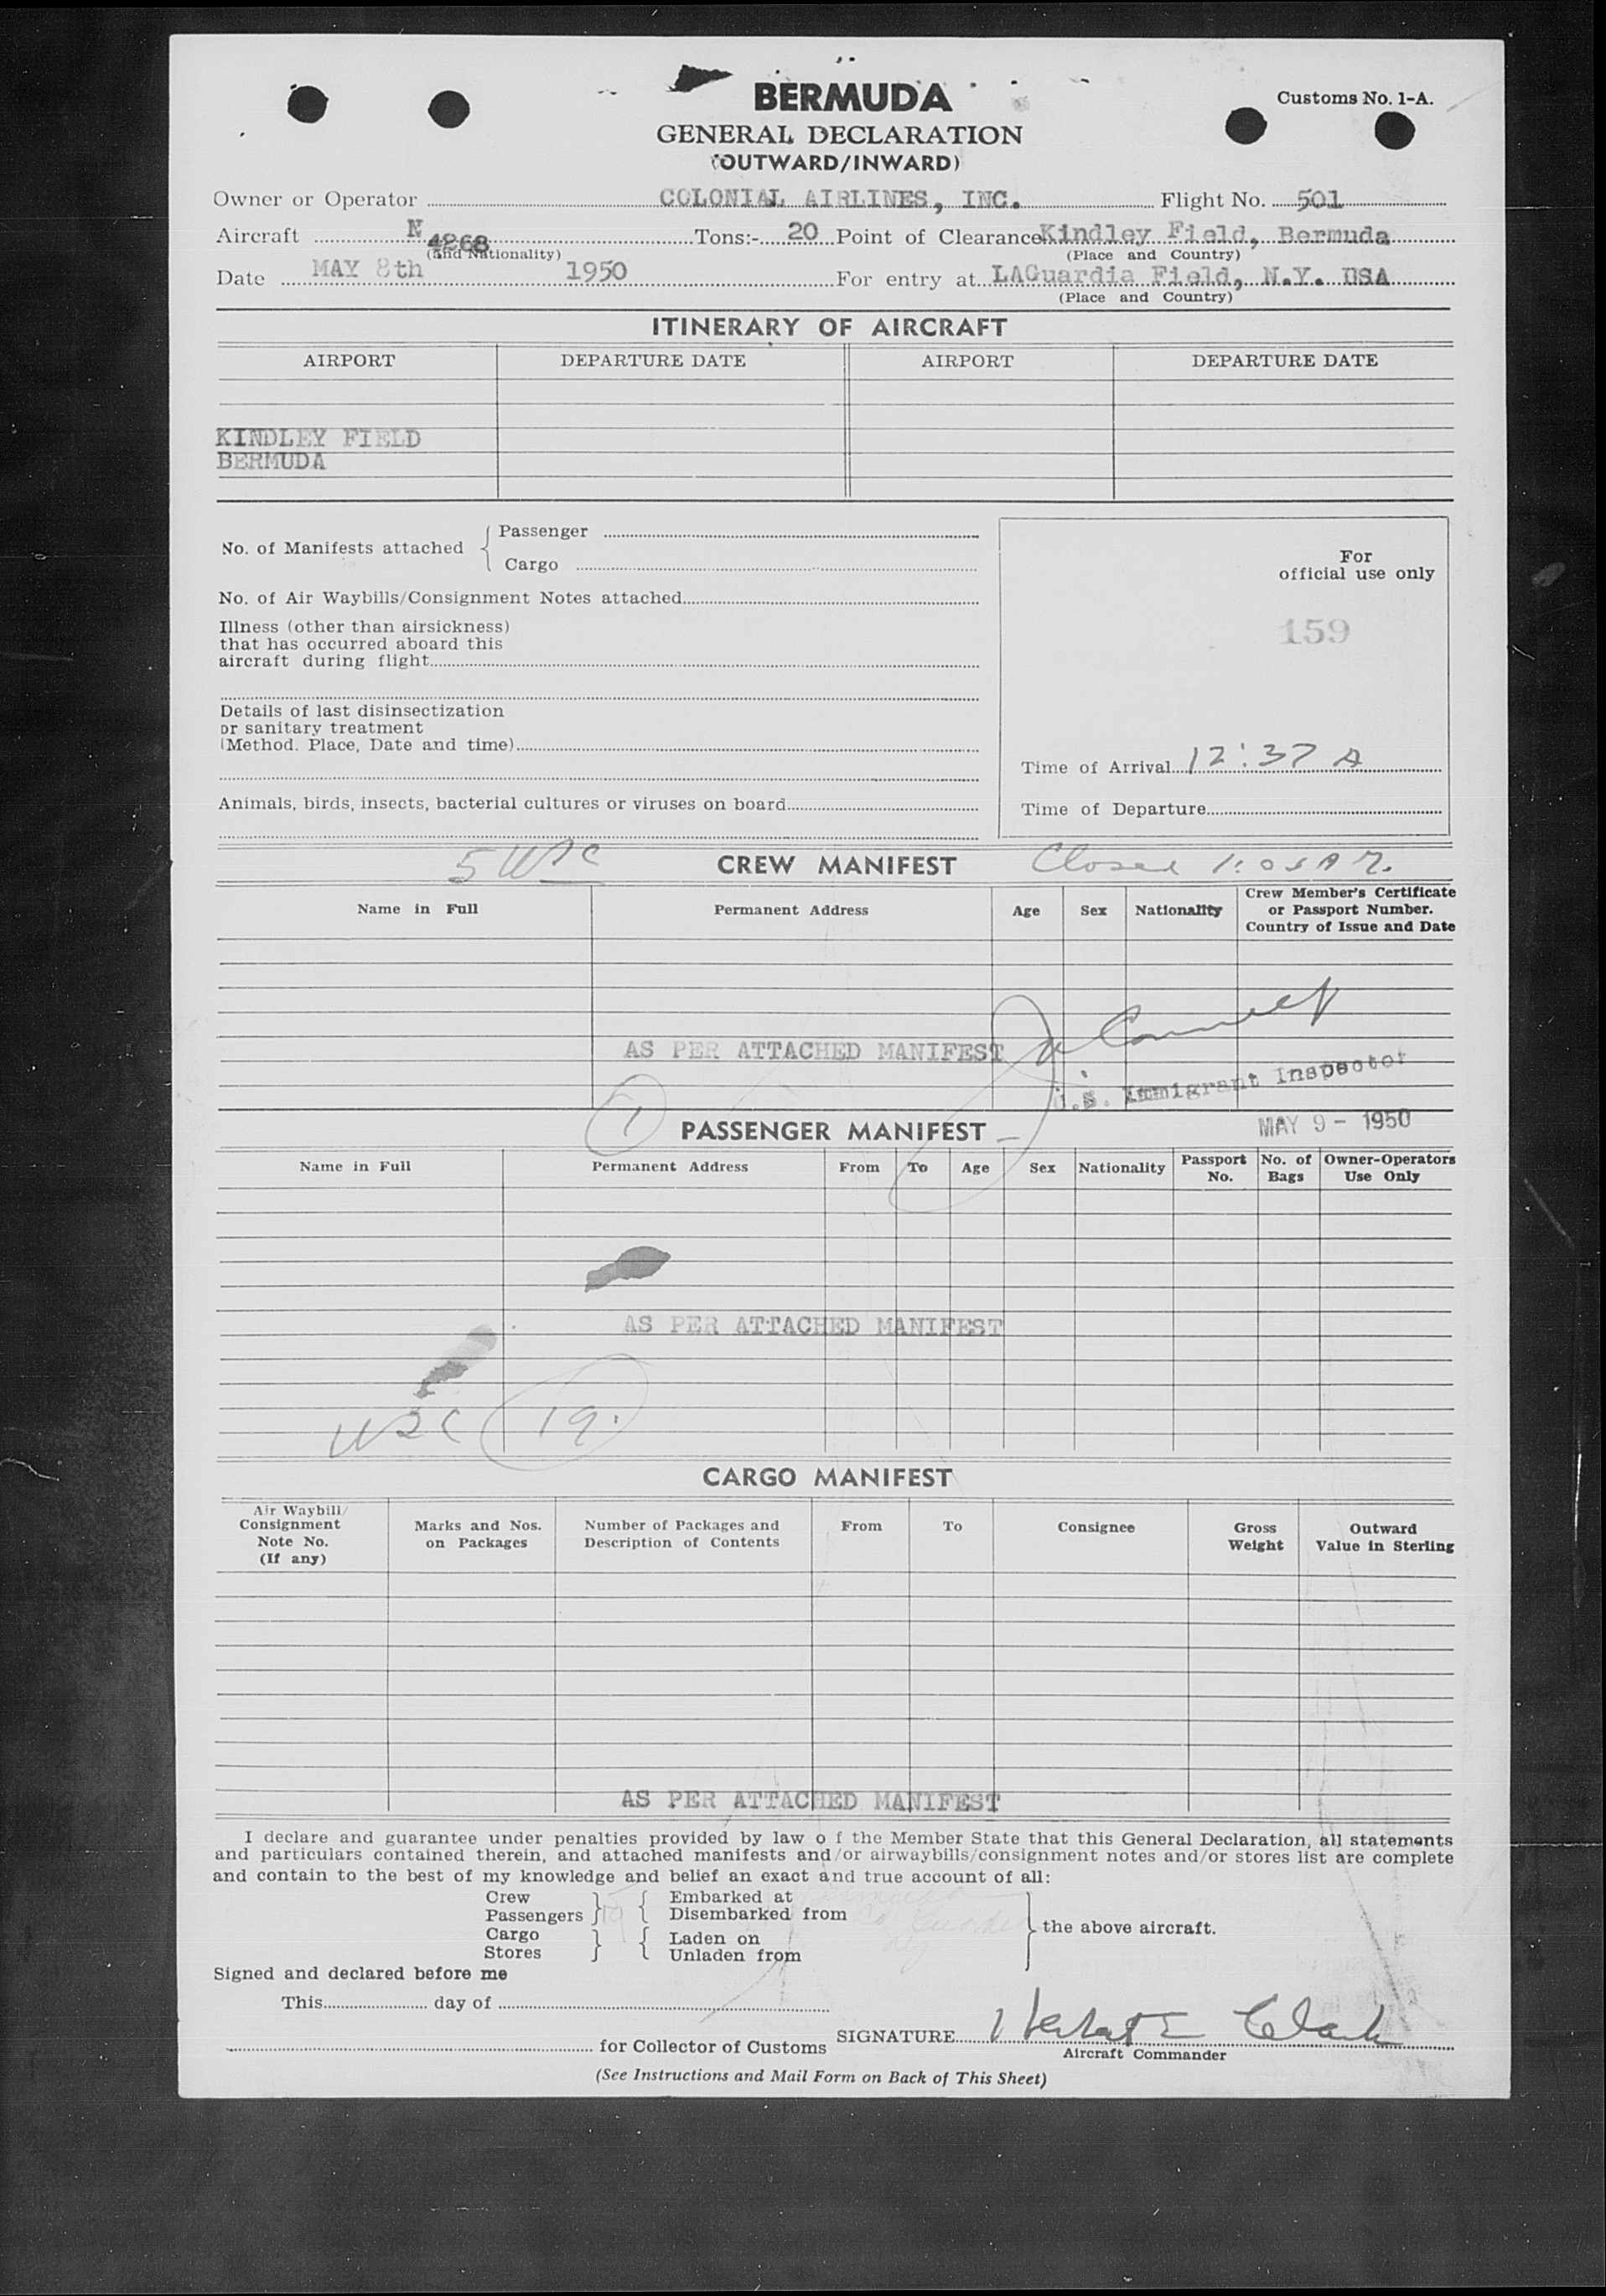 BERMUDA
Customs No. 1-A.
GENERAL DECLARATION
(OUTWARD/INWARD)
Owner or Operator COLONIAL AIRLINES, INC. Flight No. 501
Aircraft N 4268 Tons:- 20 Point of Clearance Kindley Field, Bermuda
(and Nationality) (Place and Country)
Date MAY 8th 1950 For entry at LAGuardia Field, N.Y. USA
(Place and Country)
ITINERARY OF AIRCRAFT
AIRPORT DEPARTURE DATE AIRPORT DEPARTURE DATE
KINDLEY FIELD
BERMUDA
No. of Manifests attached { Passenger
Cargo
For
official use only
No. of Air Waybills/Consignment Notes attached
159
Illness (other than airsickness)
that has occurred aboard this
aircraft during flight
Details of last disinsectization
or sanitary treatment
(Method. Place, Date and time)
Time of Arrival 12:37 A
Animals, birds, insects, bacterial cultures or viruses on board
Time of Departure
5 CREW MANIFEST Closed 1:05 A M.
Name in Full Permanent Address Age Sex Nationality Crew Member's Certificate
or Passport Number.
Country of Issue and Date
AS PER ATTACHED MANIFEST
U.S. Immigrant Inspector
MAY 9 - 1950
1
PASSENGER MANIFEST
Name in Full Permanent Address From To Age Sex Nationality Passport No. No. of Bags Owner-Operators Use Only
AS PER ATTACHED MANIFEST
19
CARGO MANIFEST
Air Waybill/
Consignment
Note No.
(If any) Marks and Nos.
on Packages Number of Packages and
Description of Contents From To Consignee Gross
Weight Outward
Value in Sterling
AS PER ATTACHED MANIFEST
I declare and guarantee under penalties provided by law o f the Member State that this General Declaration, all statements
and particulars contained therein, and attached manifests and/or airwaybills/consignment notes and/or stores list are complete
and contain to the best of my knowledge and belief an exact and true account of all:
Crew Embarked at
Passengers Disembarked from
the above aircraft.
Cargo Laden on
Stores Unladen from
Signed and declared before me
This day of
SIGNATURE Herbert E Clark
for Collector of Customs
Aircraft Commander
(See Instructions and Mail Form on Back of This Sheet)